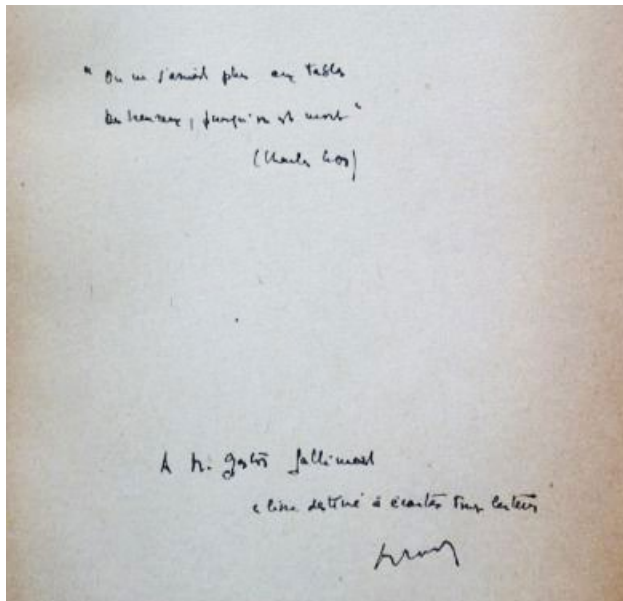 "On ne s'assied plus aux tables
des heureux, puisqu'on est mort"
(Charles Cros)
A M. Gaston Gallimard
ce livre destiné à écarter tous lecteurs